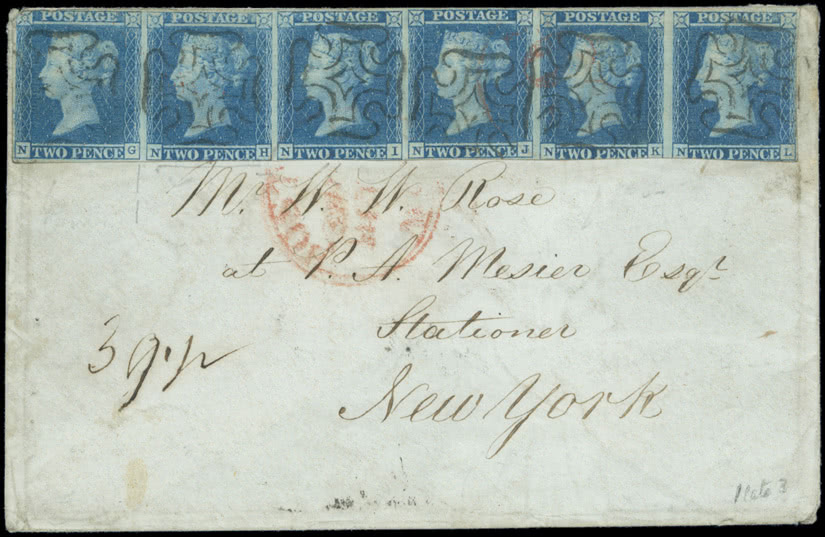 POSTAGE POSTAGE POSTAGE POSTAGE POSTAGE POSTAGE
N TWO PENCE G N TWO PENCE H N TWO PENCE I N TWO PENCE J N TWO PENCE K N TWO PENCE L
Mr. W. W. Rose
at P. A. Mesier Esqr
Stationer
New York
Plate 3